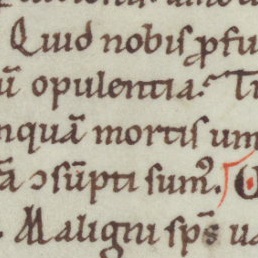 Quid nobis ꝓfu
ū opulentia. Tu
nquā mortis um
ā ↄsūpti sumꝰ.
Maligni sp̄s ua